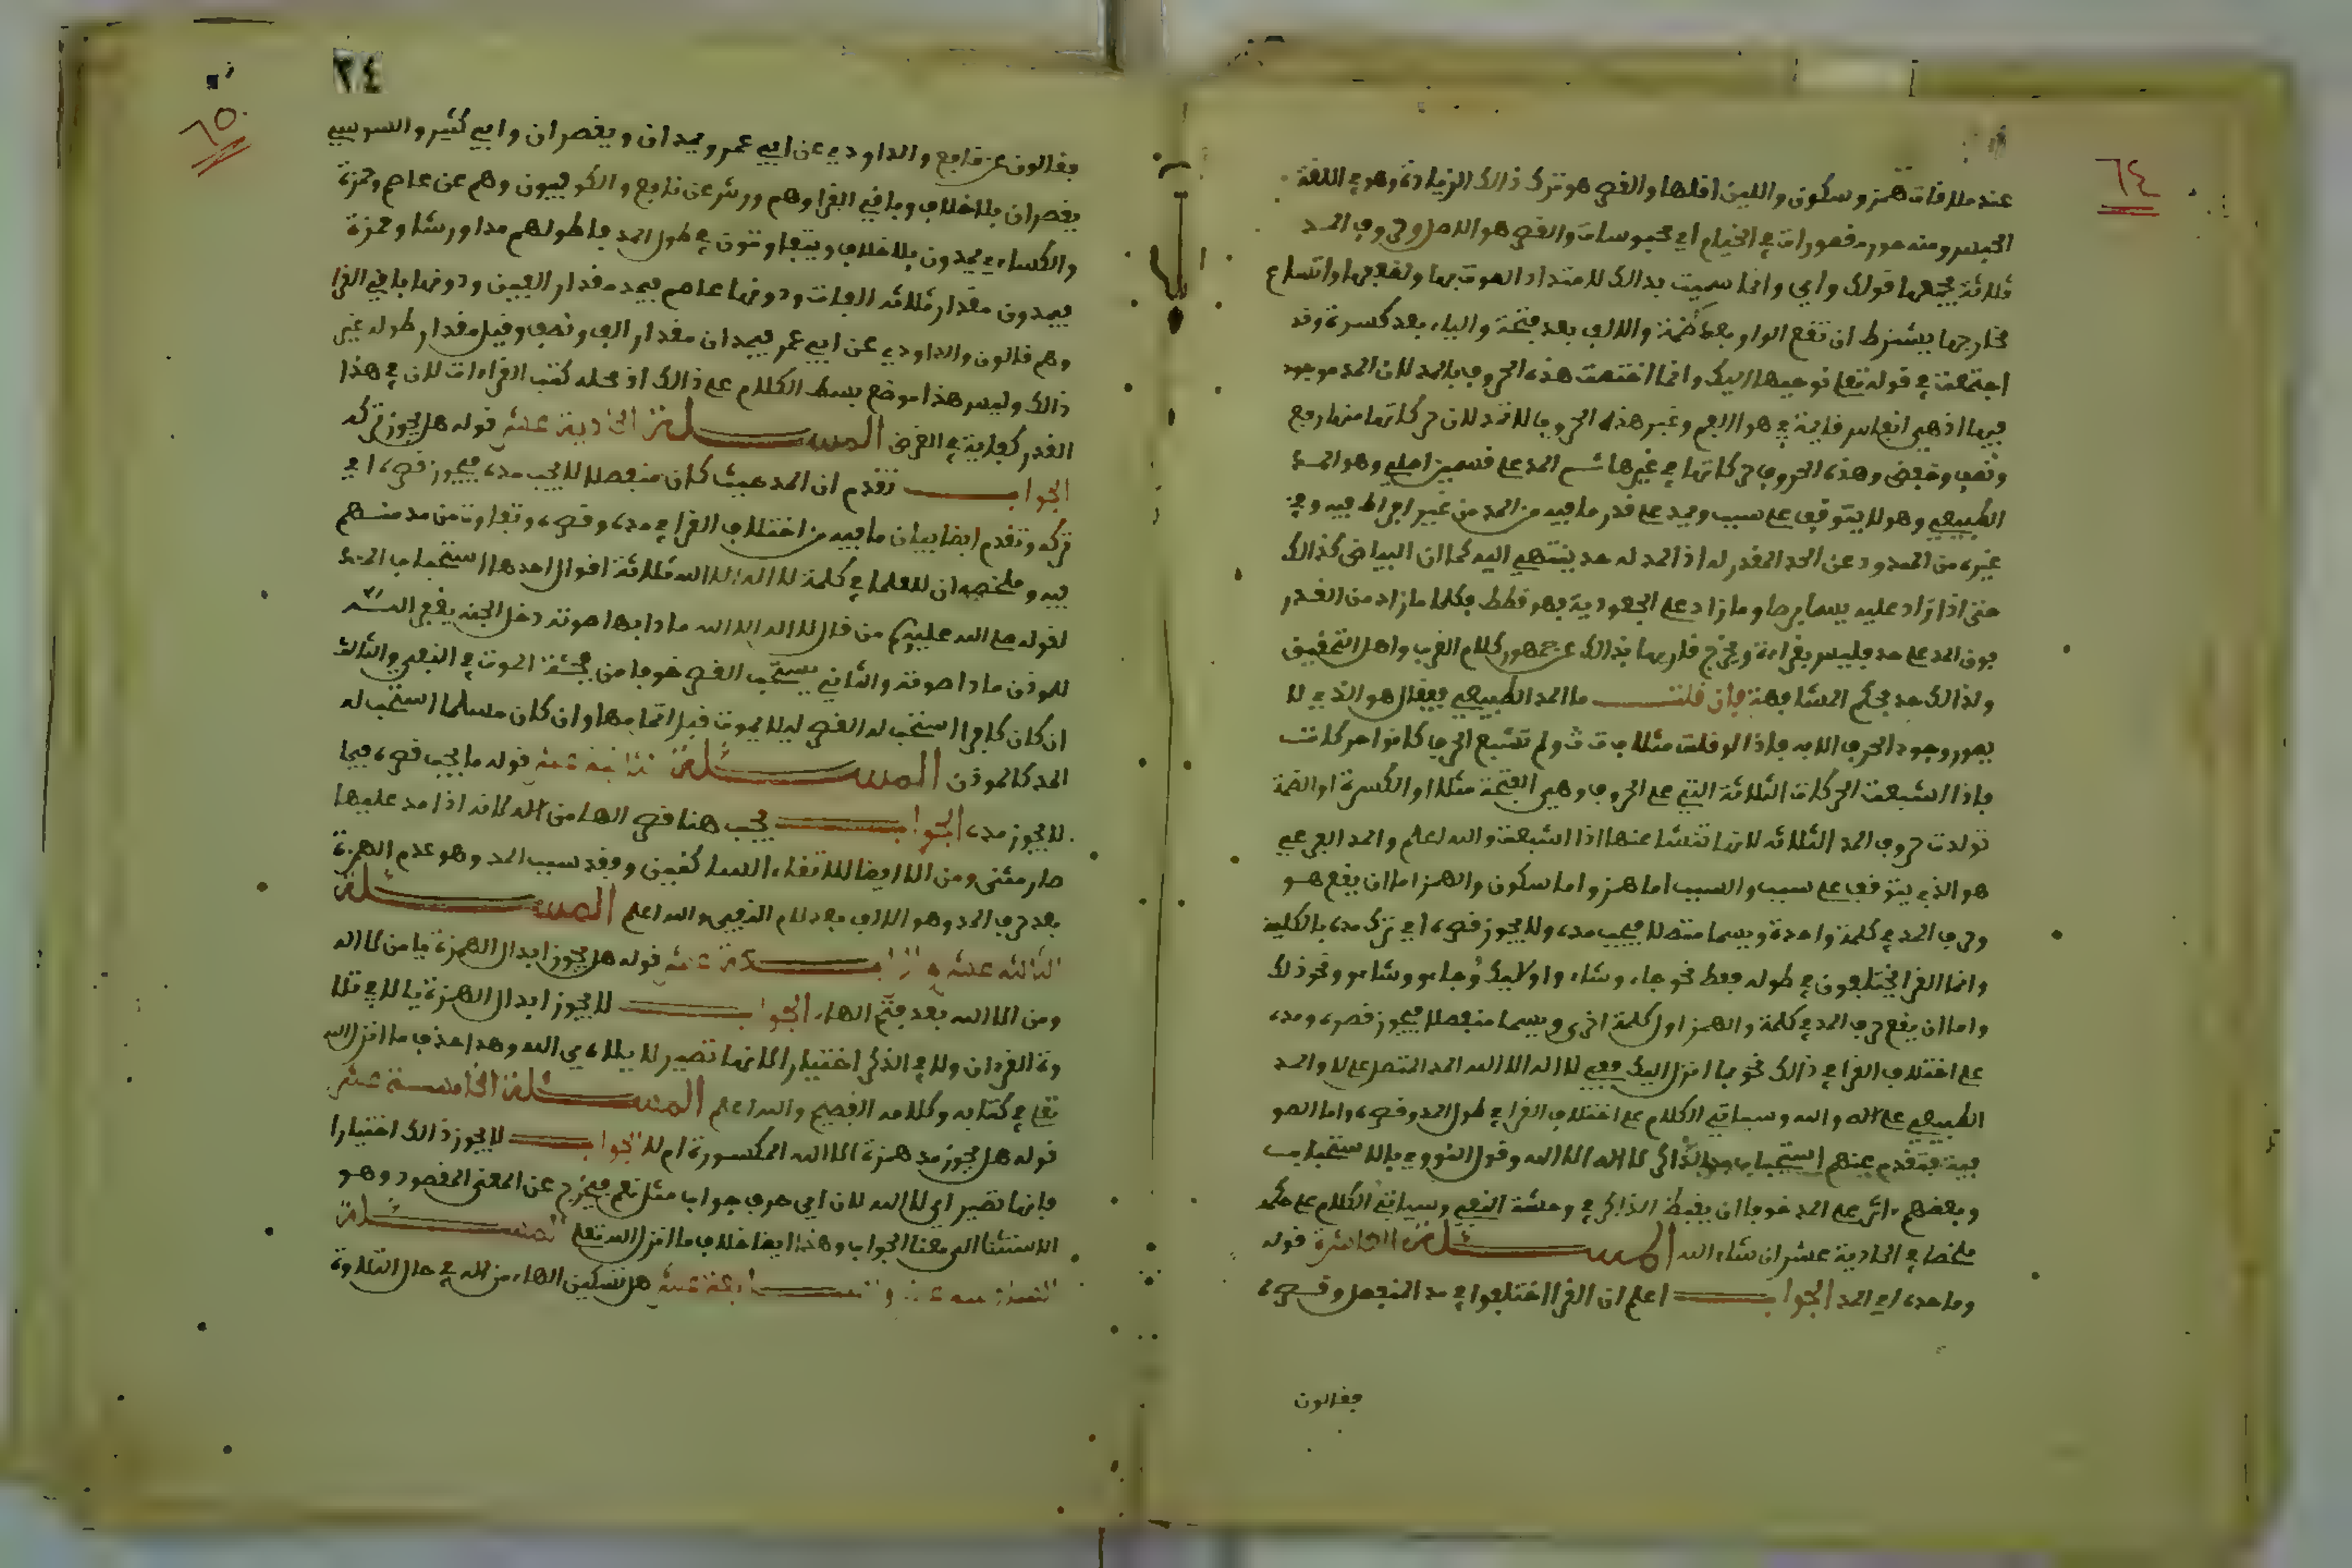 ٦٤
عند ملاقات همز وسكون واللين اقلها والقصر هو ترك ذالك الزيادة وهو في اللغة
الحبس ومنه حور مقصورات في الخيام اي محبوسات والقصر هو الاصل وحروف المد
ثلاثة يجمعها قولك واي وانما سميت بذالك لامتداد الصوت بها ولضعفها واتساع
مخارجها بشرط ان تقع الواو بعد ضمة والالف بعد فتحة والياء بعد كسرة وقد
اجتمعت في قوله تعلى نوحيها اليك وانما اختصت هذه الحروف بالمد لان المد موجود
فيها اذ هي انفاس قائمة في هواء الفم وغير هذه الحروف لا تمد لان حركاتها منها رفع
ونصب وخفض وهذه الحروف حركاتها في غيرها ثم المد على قسمين اصلي وهو المد
الطبيعي وهو لا يتوقف على سبب ويمد على قدر ما فيه من المد من غير افراط فيه وفي
غيره من الممدود عن الحد المقدر له اذ المد له حد ينتهي اليه كما ان البياض كذالك
متى اذا زاد عليه يسما برصا وما زاد على الجعودية فهو قطط فكلما زاد من القدر
فوق المد على حد فليس بقراءة ويخرج قاريها بذالك عن جمهور كلام العرب واهل التحقيق
ولذالك حد يحكم المشافهة فان قلت ما المد الطبيعي فيقال هو الذي لا
يصور وجود الحرف الا به فاذا لو قلت مثلا ب ت ث ولم تشبع الحرف كانوا حركات
فاذا اشبعت الحركات الثلاثة التي على الحروف وهي الفتحة مثلا او الكسرة او الضمة
تولدت حروف المد الثلاثه لانها تنشا عنها اذا اشبعت والله اعلم والمد الفرعي
هو الذي يتوقف على سبب والسبب اما همز واما سكون والهمز اما ان يقع هو
وحرف المد في كلمة واحدة ويسما متصلا فيجب مده ولا يجوز قصره اي ترك مده بالكلية
وانما القرا يختلفون في طوله فقط نحو جاء وشاء واولايك وجاءو وشاءو ونحو ذلك
واما ان يقع حرف المد في كلمة والهمز اول كلمة اخرى ويسما منفصلا فيجوز قصره ومده
على اختلاف القرا في ذالك نحو بما انزل اليك ففي لا اله الا الله المد المتصل على لا والمد
الطبيعي على اله والله وسياتي الكلام على اختلاف القرا في طول المد وقصره واما الصو
فية فتقدم عنهم استحباب مد الذاكر لا اله الا الله وقول النووي بالاستحباب
وبعضهم اثر على المد خوفا ان يقبض الذاكر في وحشة النفي وسياتي الكلام على حكم
ملخصا في الحادية عشر ان شاء الله المسئلة العاشرة قوله
وما حده اي المد الجواب اعلم ان القرا اختلفوا في مد المنفصل وقصره
فقالون
٢٤
٦٥
فقالون عن نافع والداودي عن ابي عمرو يمدان ويقصران وابي كثير والسوسي
يقصران بلا خلاف وباقي القرا وهم ورش عن نافع والكوفيون وهم عن عاصم وحمزة
والكساءي يمدون بلا خلاف ويتفاوتون في طول المد فاطولهم مدا ورشا وحمزة
فيمدون مقدار ثلاثه الفات ودونها عاصم فيمد مقدار الفين ودونها باقي القرا
وهم قالون والداودي عن ابي عمر فيمدان مقدار الف ونصف وقيل مقدار طوله غير
ذالك وليس هذا موضع بسط الكلام على ذالك اذ محله كتب القراءات لان في هذا
القدر كفاية في الغرض المسئلة الحادية عشر قوله هل يجوز تركه
الجواب تقدم ان المد حيث كان منفصلا لا يجب مده فيجوز قصره اي
تركه وتقدم ايضا بيان ما فيه من اختلاف القرا في مده وقصره وتفاوت من مد منهم
فيه وملخصه ان للعلما في كلمة لا اله الا الله ثلاثة اقوال احدها استحباب المد
لقوله صلى الله عليه من قال لا اله الا الله مادا بها صوته دخل الجنة يغفر الله
للموذن مادا صوته والثاني يستحب القصر خوفا من فجئة الموت في النفي والثالث
ان كان كافرا استحب له القصر ليلا يموت قبل اتمامها وان كان مسلما استحب له
المد كالموذن المسئلة الثانية عشر قوله ما يجب قصره فيما
لا يجوز مده الجواب يجب هنا قصر الها من اله لانه اذا مد عليها
صار مثنى ومن الا ايضا لالتقاء الساكنين وفقد سبب المد وهو عدم الهمزة
بعد حرف المد وهو الالف بعد لام النفي والله اعلم المسئلة
الثالثه عشر والرابعة عشر قوله هل يجوز ابدال الهمزة يا من لا اله
ومن الا الله بعد فتح الهاء الجواب لا يجوز ابدال الهمزة يا لا في تلا
وة القرءان ولا في الذكر اختيارا لانها تصير لا يلاه ي الله وهذا حذف ما انزل الله
تعلى في كتابه وكلامه الفصيح والله اعلم المسئلة الخامسة عشر
قوله هل يجوز مد همزة الا الله المكسورة ام لا الجواب لا يجوز ذالك اختيارا
فانها تصير اي لا الله لان اي حرف جواب مثل نعم فيخرج عن المعنى المقصود وهو
الاستثنا الى معنا الجواب وهذا ايضا خلاف ما انزل الله تعلى المسئلة
السادسة عشر والسابعة عشر هل تسكين الهاء من اله في حال التلاوة